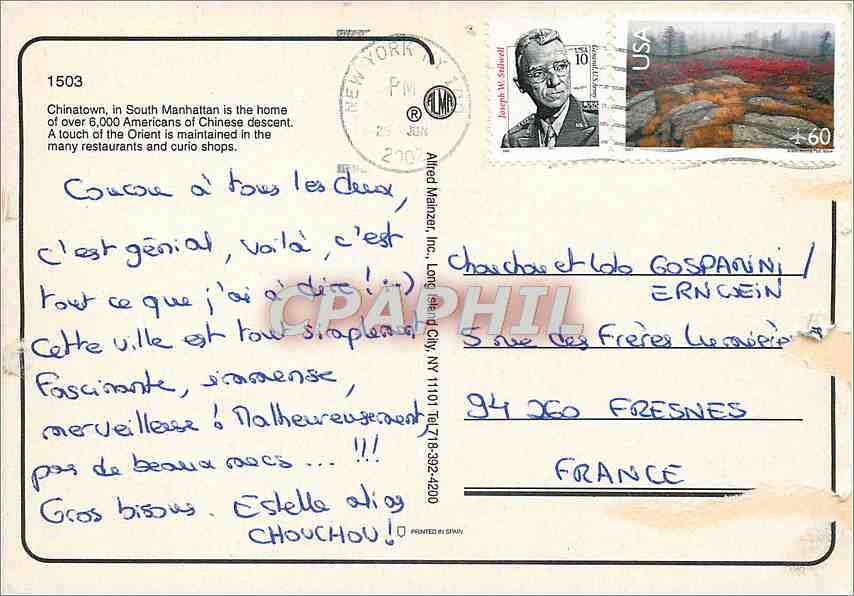 1503
Chinatown, in South Manhattan is the home
of over 6,000 Americans of Chinese descent.
A touch of the Orient is maintained in the
many restaurants and curio shops.
Coucou à tous les deux,
c'est génial, voilà, c'est
tout ce que j'ai à dire ! :-)
Cette ville est tout simplement
fascinante, immense,
merveilleuse ! Malheureusement,
pas de beaux mecs ... !!!
Gros bisous. Estelle alias
CHOUCHOU !
PRINTED IN SPAIN
Alfred Mainzer, Inc., Long Island City, NY 11101 Tel. 718-392-4200
ALMA
®
NEW YORK NY 100
PM
JUN
Joseph W. Stilwell
USA
10
General, U.S. Army
USA
60
Chouchou et Lolo GOSPARINI /
ERNWEIN
5 rue des Frères Lumière
94 260 FRESNES
FRANCE
CPAPHIL